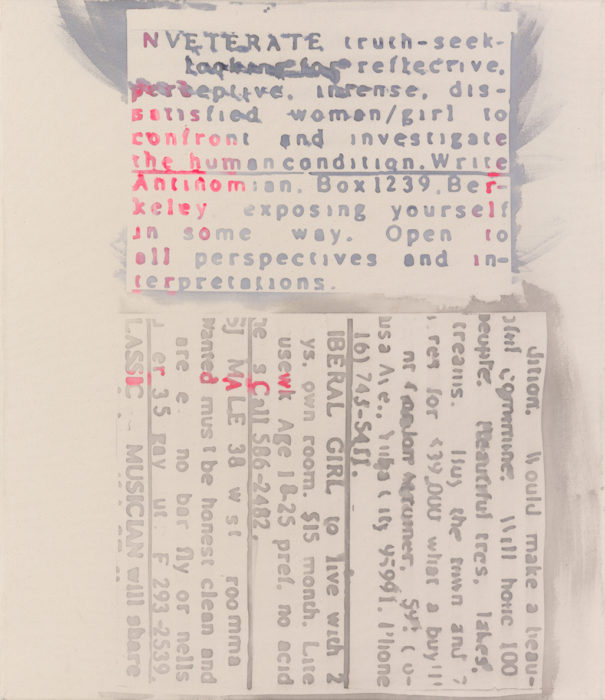 NVETERATE truth-seek-
reflective,
perceptive, intense, dis-
satisfied woman/girl to
confront and investigate
the human condition. Write
Antinomian, Box 1239, Ber-
keley exposing yourself
in some way. Open to
all perspectives and in-
terpretations.
would make a beau-
commune. Will house 100
people. Beautiful trees, lakes,
streams. Buy the town and
for $39,000 what a buy!!
16) 745-5411.
IBERAL GIRL to live with 2
ys. own room. $15 month. Lite
usewk Age 18-25 pref. no acid
Call 586-2482.
MALE 38 w st roomma
wanted must be honest clean and
are e. no bar fly or nells
er 35 Ray ut. F 293-2539.
LASSIC MUSICIAN will share